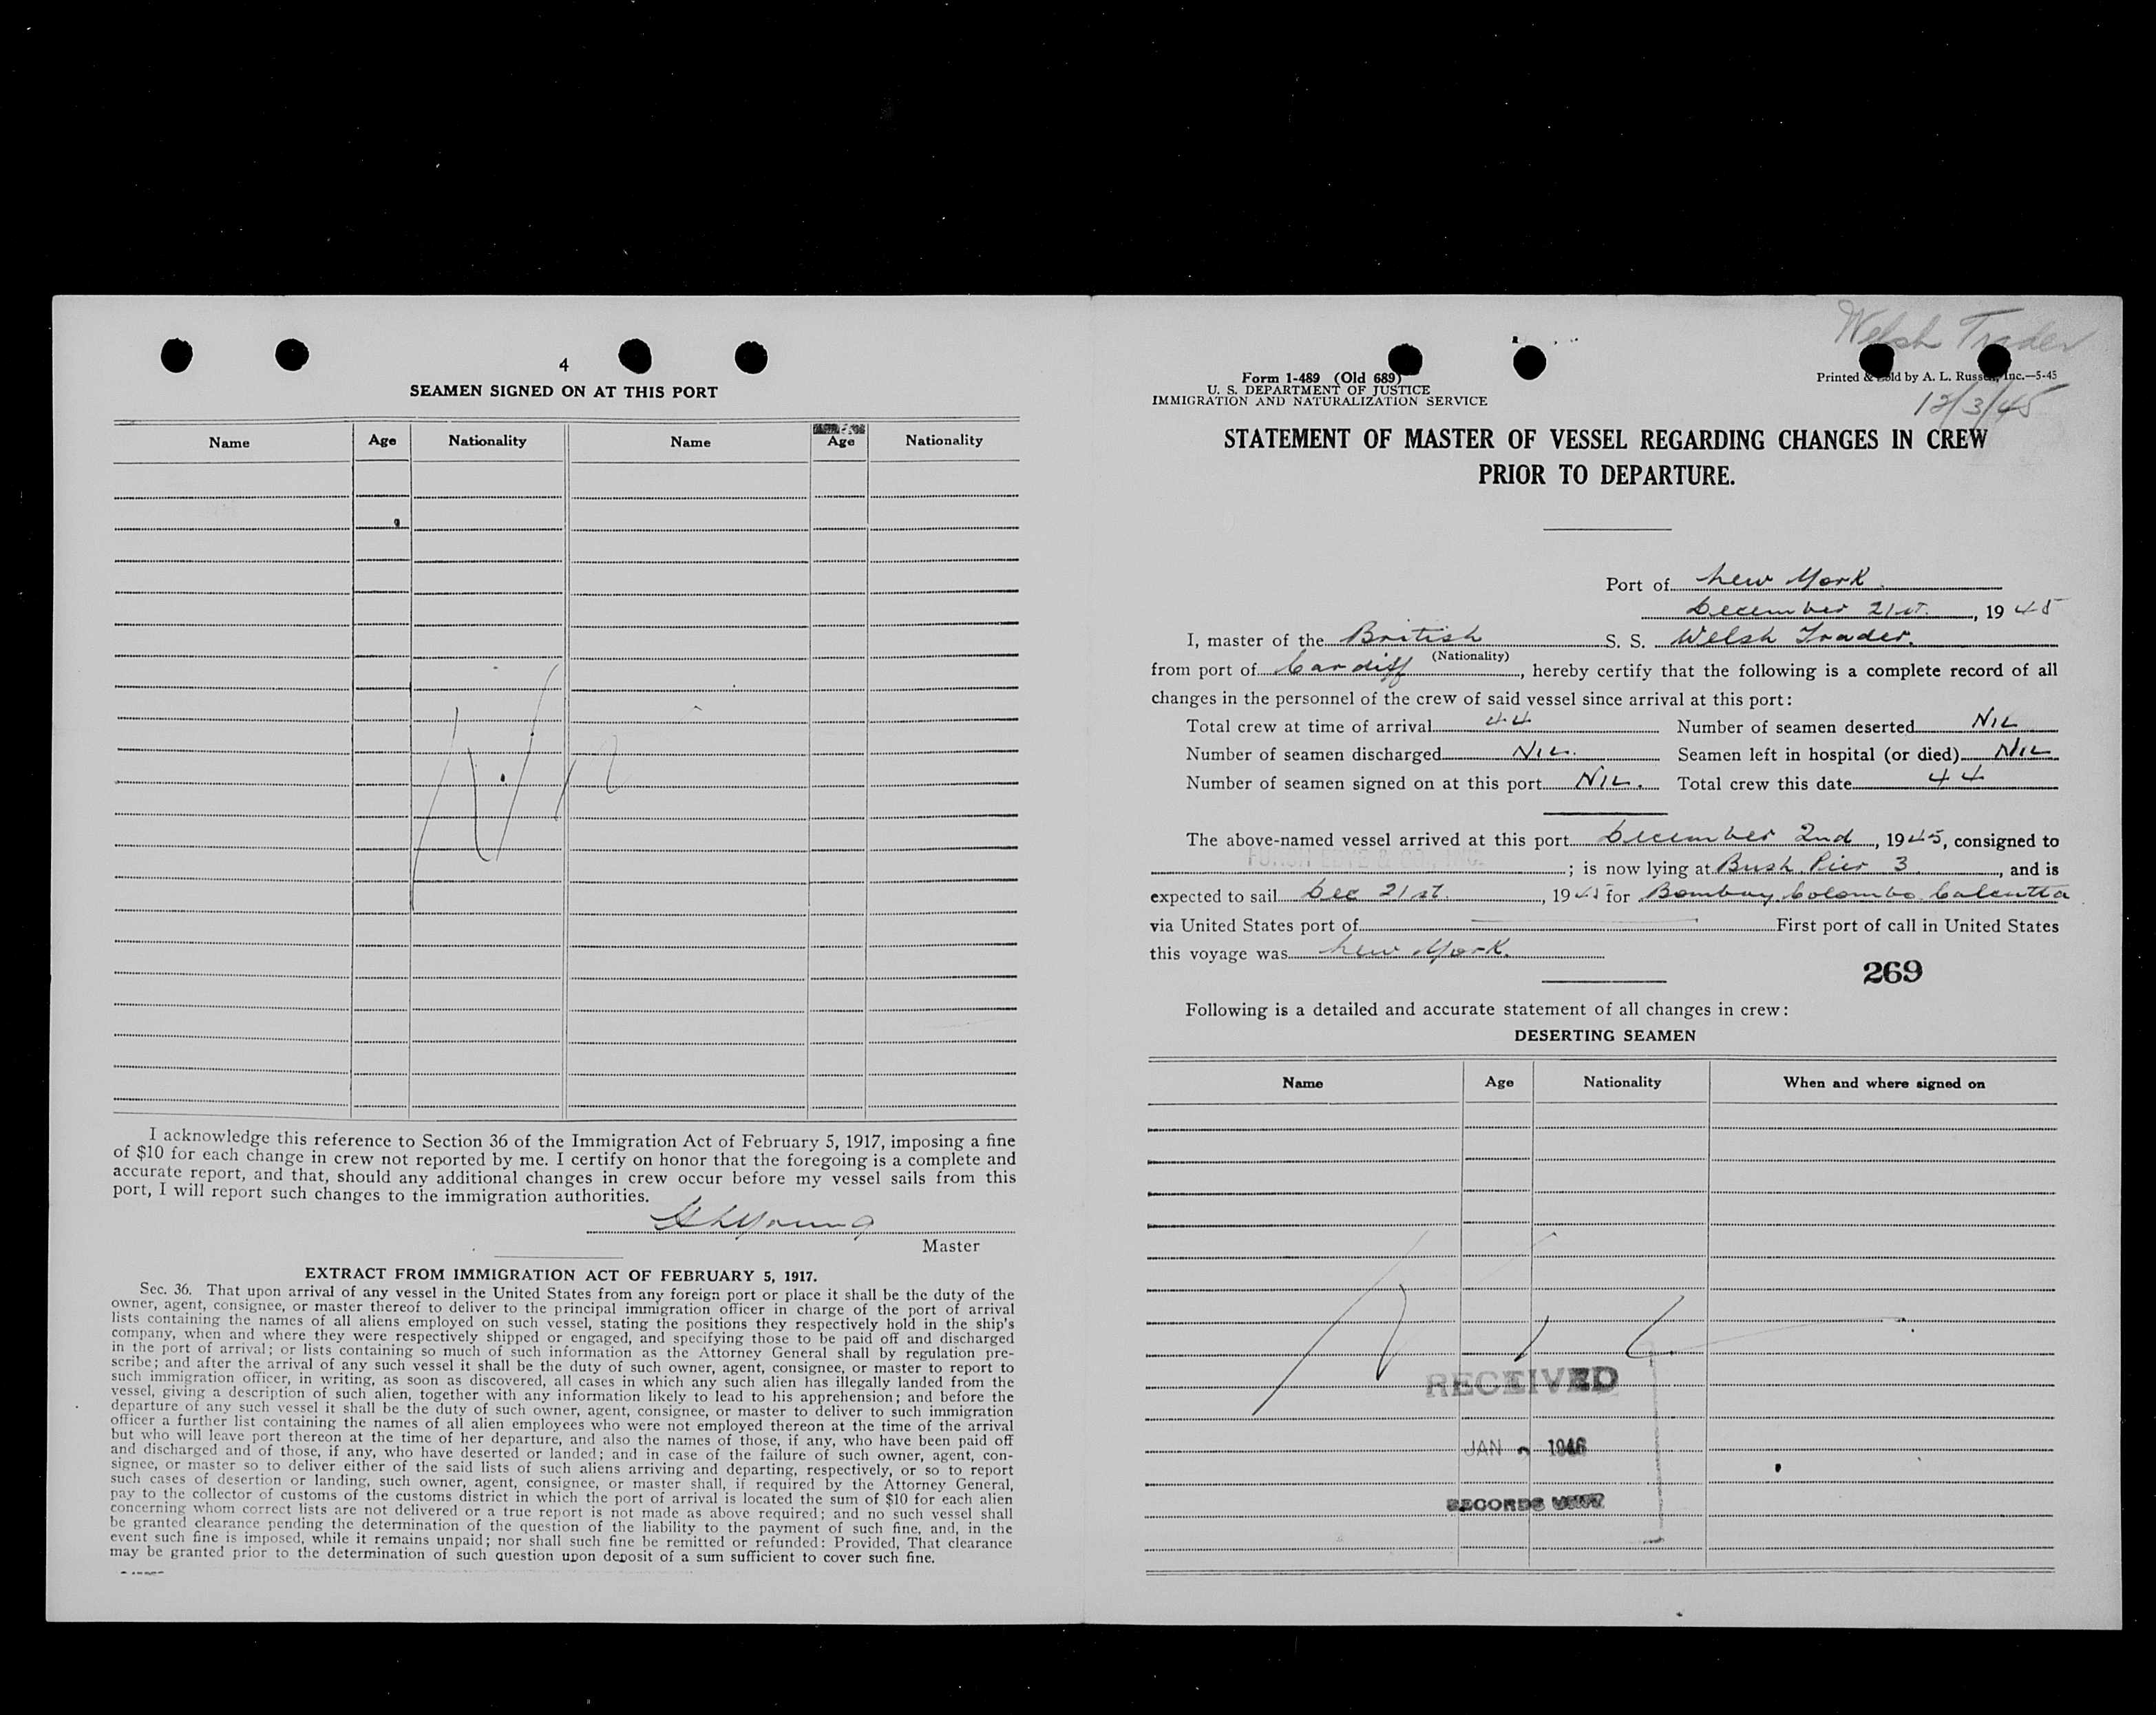 4
SEAMEN SIGNED ON AT THIS PORT
Name Age Nationality Name Age Nationality
Nil
I acknowledge this reference to Section 36 of the Immigration Act of February 5, 1917, imposing a fine
of $10 for each change in crew not reported by me. I certify on honor that the foregoing is a complete and
accurate report, and that, should any additional changes in crew occur before my vessel sails from this
port, I will report such changes to the immigration authorities.
Young
Master
EXTRACT FROM IMMIGRATION ACT OF FEBRUARY 5, 1917.
Sec. 36. That upon arrival of any vessel in the United States from any foreign port or place it shall be the duty of the
owner, agent, consignee, or master thereof to deliver to the principal immigration officer in charge of the port of arrival
lists containing the names of all aliens employed on such vessel, stating the positions they respectively hold in the ship's
company, when and where they were respectively shipped or engaged, and specifying those to be paid off and discharged
in the port of arrival; or lists containing so much of such information as the Attorney General shall by regulation pre-
scribe; and after the arrival of any such vessel it shall be the duty of such owner, agent, consignee, or master to report to
such immigration officer, in writing, as soon as discovered, all cases in which any such alien has illegally landed from the
vessel, giving a description of such alien, together with any information likely to lead to his apprehension; and before the
departure of any such vessel it shall be the duty of such owner, agent, consignee, or master to deliver to such immigration
officer a further list containing the names of all alien employees who were not employed thereon at the time of the arrival
but who will leave port thereon at the time of her departure, and also the names of those, if any, who have been paid off
and discharged and of those, if any, who have deserted or landed; and in case of the failure of such owner, agent, con-
signee, or master so to deliver either of the said lists of such aliens arriving and departing, respectively, or so to report
such cases of desertion or landing, such owner, agent, consignee, or master shall, if required by the Attorney General,
pay to the collector of customs of the customs district in which the port of arrival is located the sum of $10 for each alien
concerning whom correct lists are not delivered or a true report is not made as above required; and no such vessel shall
be granted clearance pending the determination of the question of the liability to the payment of such fine, and, in the
event such fine is imposed, while it remains unpaid; nor shall such fine be remitted or refunded: Provided, That clearance
may be granted prior to the determination of such question upon deposit of a sum sufficient to cover such fine.
Welsh Trader
12/3/45
Form 1-489 (Old 689)
U. S. DEPARTMENT OF JUSTICE
IMMIGRATION AND NATURALIZATION SERVICE
Printed & Sold by A. L. Russell, Inc.—5-45
STATEMENT OF MASTER OF VESSEL REGARDING CHANGES IN CREW
PRIOR TO DEPARTURE.
Port of New York
December 21st., 1945
I, master of the British S. S. Welsh Trader.
(Nationality)
from port of Cardiff, hereby certify that the following is a complete record of all
changes in the personnel of the crew of said vessel since arrival at this port:
Total crew at time of arrival 44 Number of seamen deserted NIL
Number of seamen discharged NIL. Seamen left in hospital (or died) NIL
Number of seamen signed on at this port NIL. Total crew this date 44
The above-named vessel arrived at this port December 2nd, 1945, consigned to
FUNCH EDYE & CO., INC.; is now lying at Bush Pier 3, and is
expected to sail Dec 21st., 1945 for Bombay, Colombo, Calcutta
via United States port of First port of call in United States
this voyage was New York.
269
Following is a detailed and accurate statement of all changes in crew:
DESERTING SEAMEN
Name Age Nationality When and where signed on
NIL
RECEIVED
JAN 1946
RECORDS UNIT